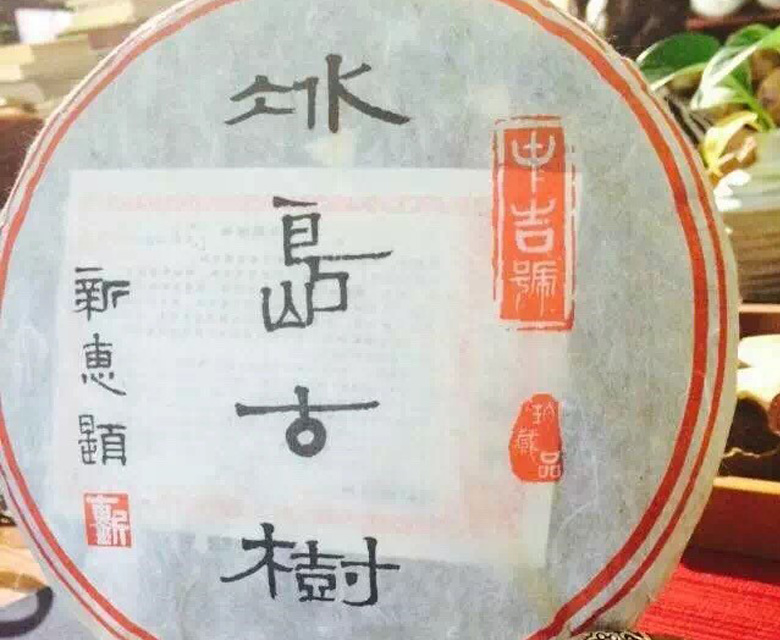 中吉號
珍藏品
冰島古樹
新惠題